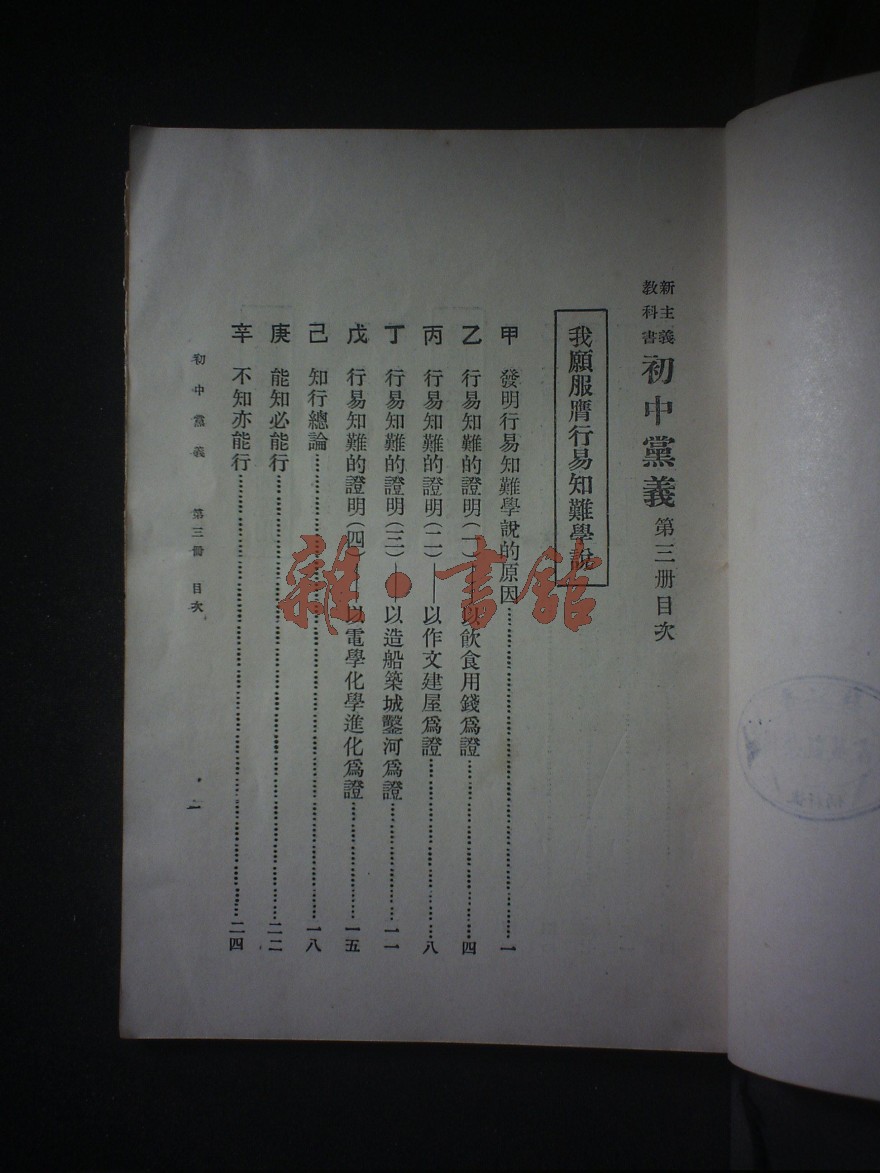 新主義教科書 初中黨義 第三册目次
我願服膺行易知難學說
甲 發明行易知難學說的原因……一
乙 行易知難的證明(一)——以飲食用錢爲證……四
丙 行易知難的證明(二)——以作文建屋爲證……八
丁 行易知難的證明(三)——以造船築城鑿河爲證……一一
戊 行易知難的證明(四)——以電學化學進化爲證……一五
己 知行總論……一八
庚 能知必能行……二二
辛 不知亦能行……二四
初中黨義 第三冊 目次
雜·書館